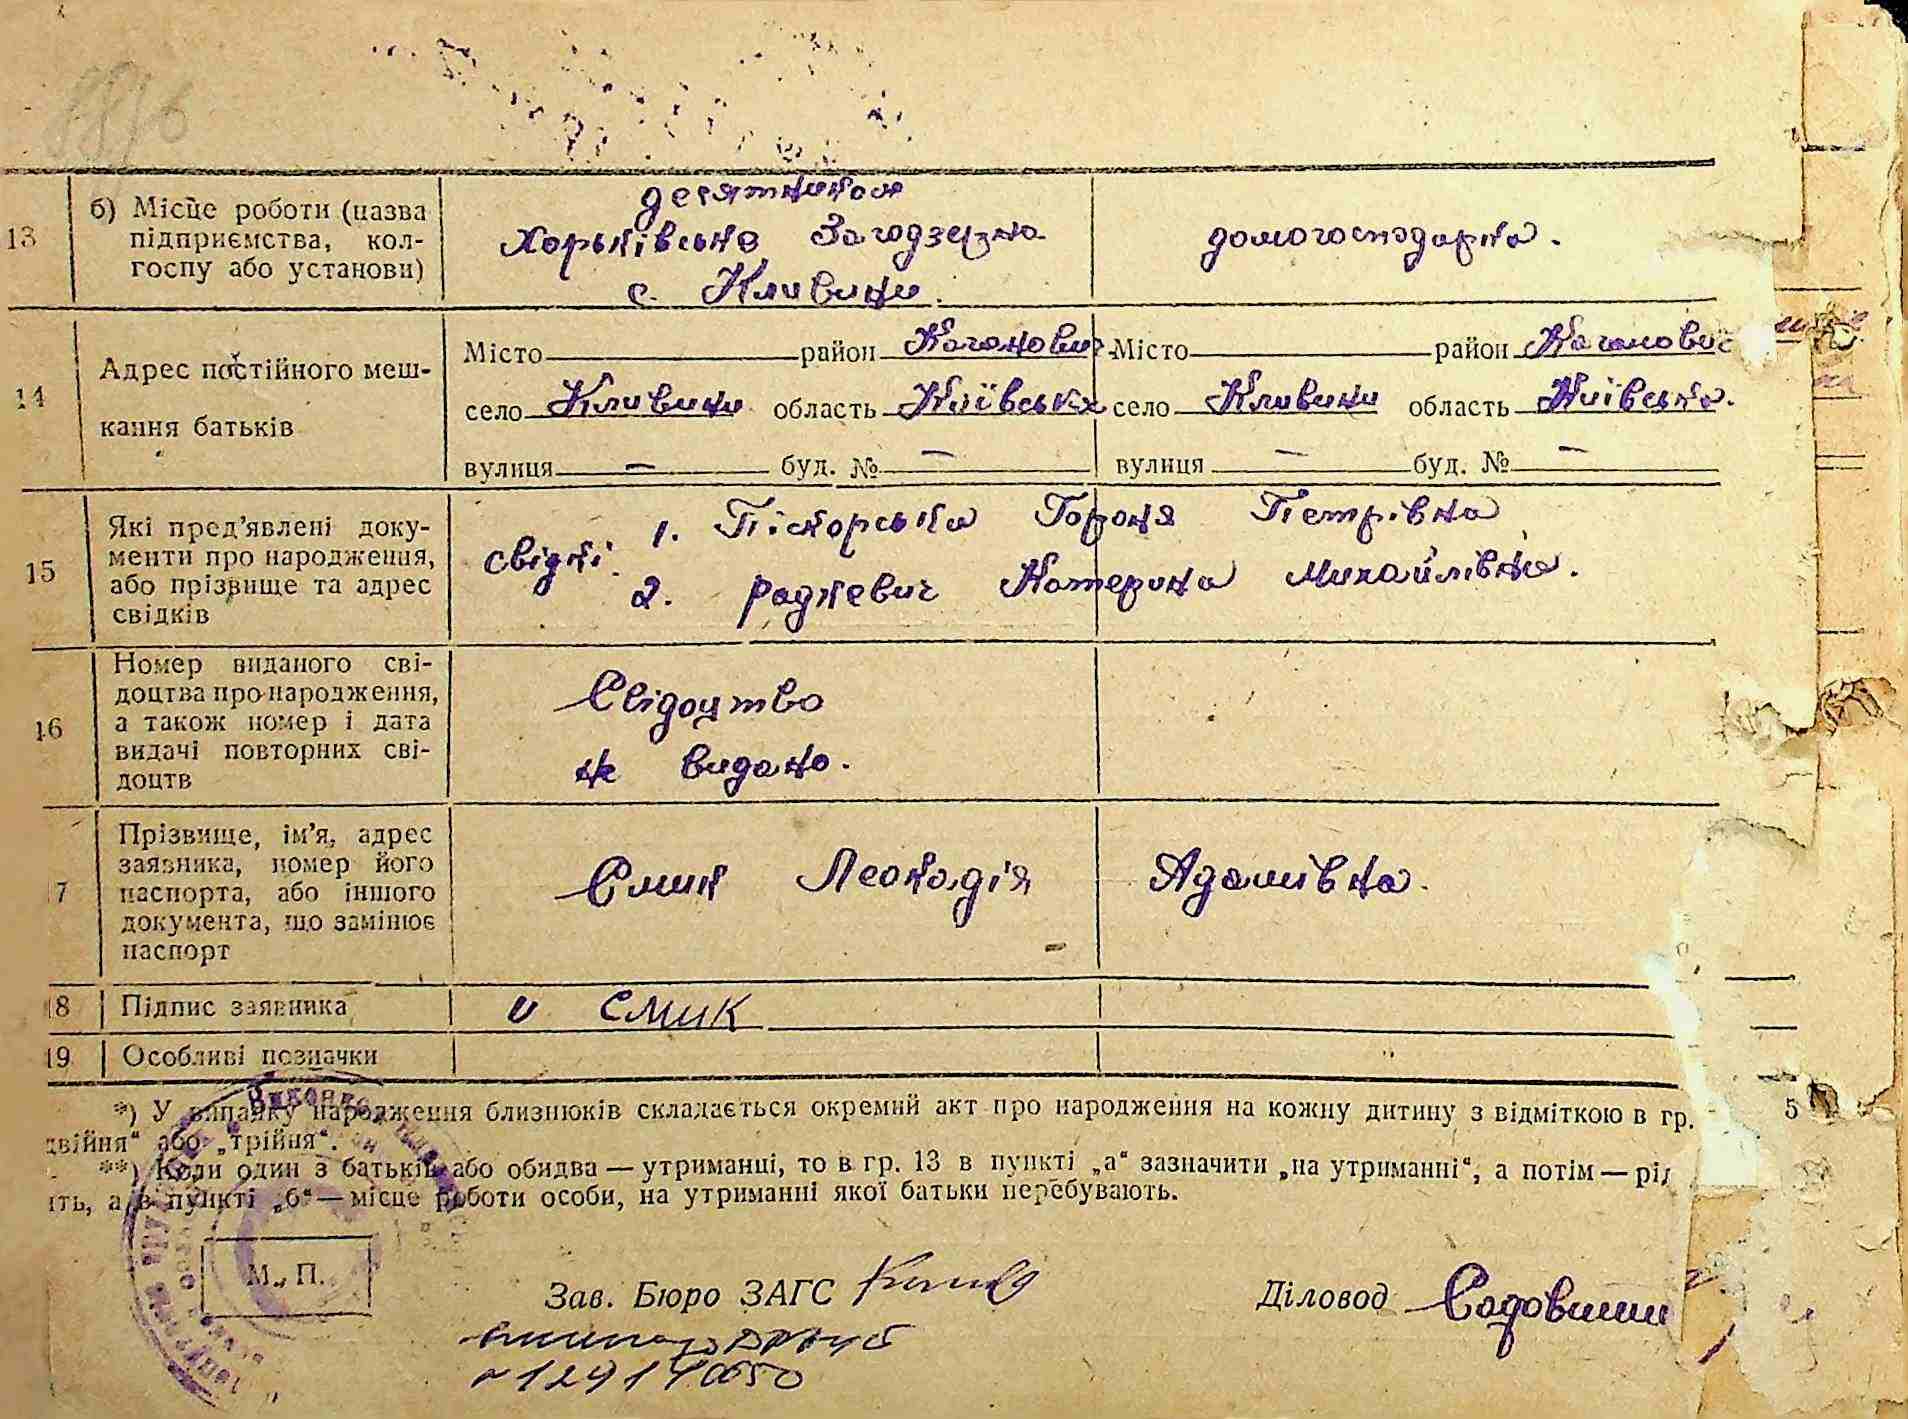 13
б) Місце роботи (назва
підприємства, кол-
госпу або установи)
десятником
Харьківська Загодзерна
с. Кливини.
домогосподарка.
14
Адрес постійного меш-
кання батьків
Місто район Каганович
село Кливини область Київська
вулиця — буд. № —
Місто район Каганович
село Кливини область Київська.
вулиця — буд. № —
15
Які пред'явлені доку-
менти про народження,
або прізвище та адрес
свідків
свідкі. 1. Піскорська Петрівна
2. Радкевич Катерина Михайлівна.
16
Номер виданого сві-
доцтва про народження,
а також номер і дата
видачі повторних сві-
доцтв
Свідоцтво
не видано.
7
Прізвище, ім'я, адрес
заявника, номер його
паспорта, або іншого
документа, що замінює
паспорт
Смик Леокадія Адамівна.
18
Підпис заявника
Смик
19
Особливі позначки
*) У випадку народження близнюків складається окремий акт про народження на кожну дитину з відміткою в гр.
двійня“ або „трійня“.
**) Коли один з батьків або обидва — утриманці, то в гр. 13 в пункті „а“ зазначити „на утриманні“, а потім — рід
іть, а в пункті „б“ — місце роботи особи, на утриманні якої батьки перебувають.
5
М. П.
Зав. Бюро ЗАГС
Діловод